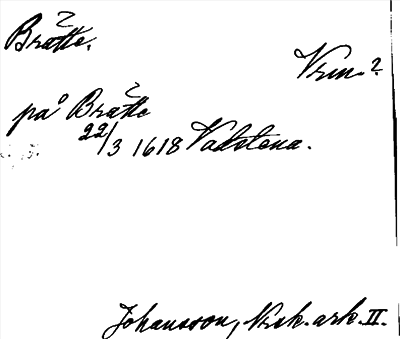 Brătte.
Vrm.?
på Brătte
22/3 1618 Vadstena.
Johansson, Norsk. ark. II.